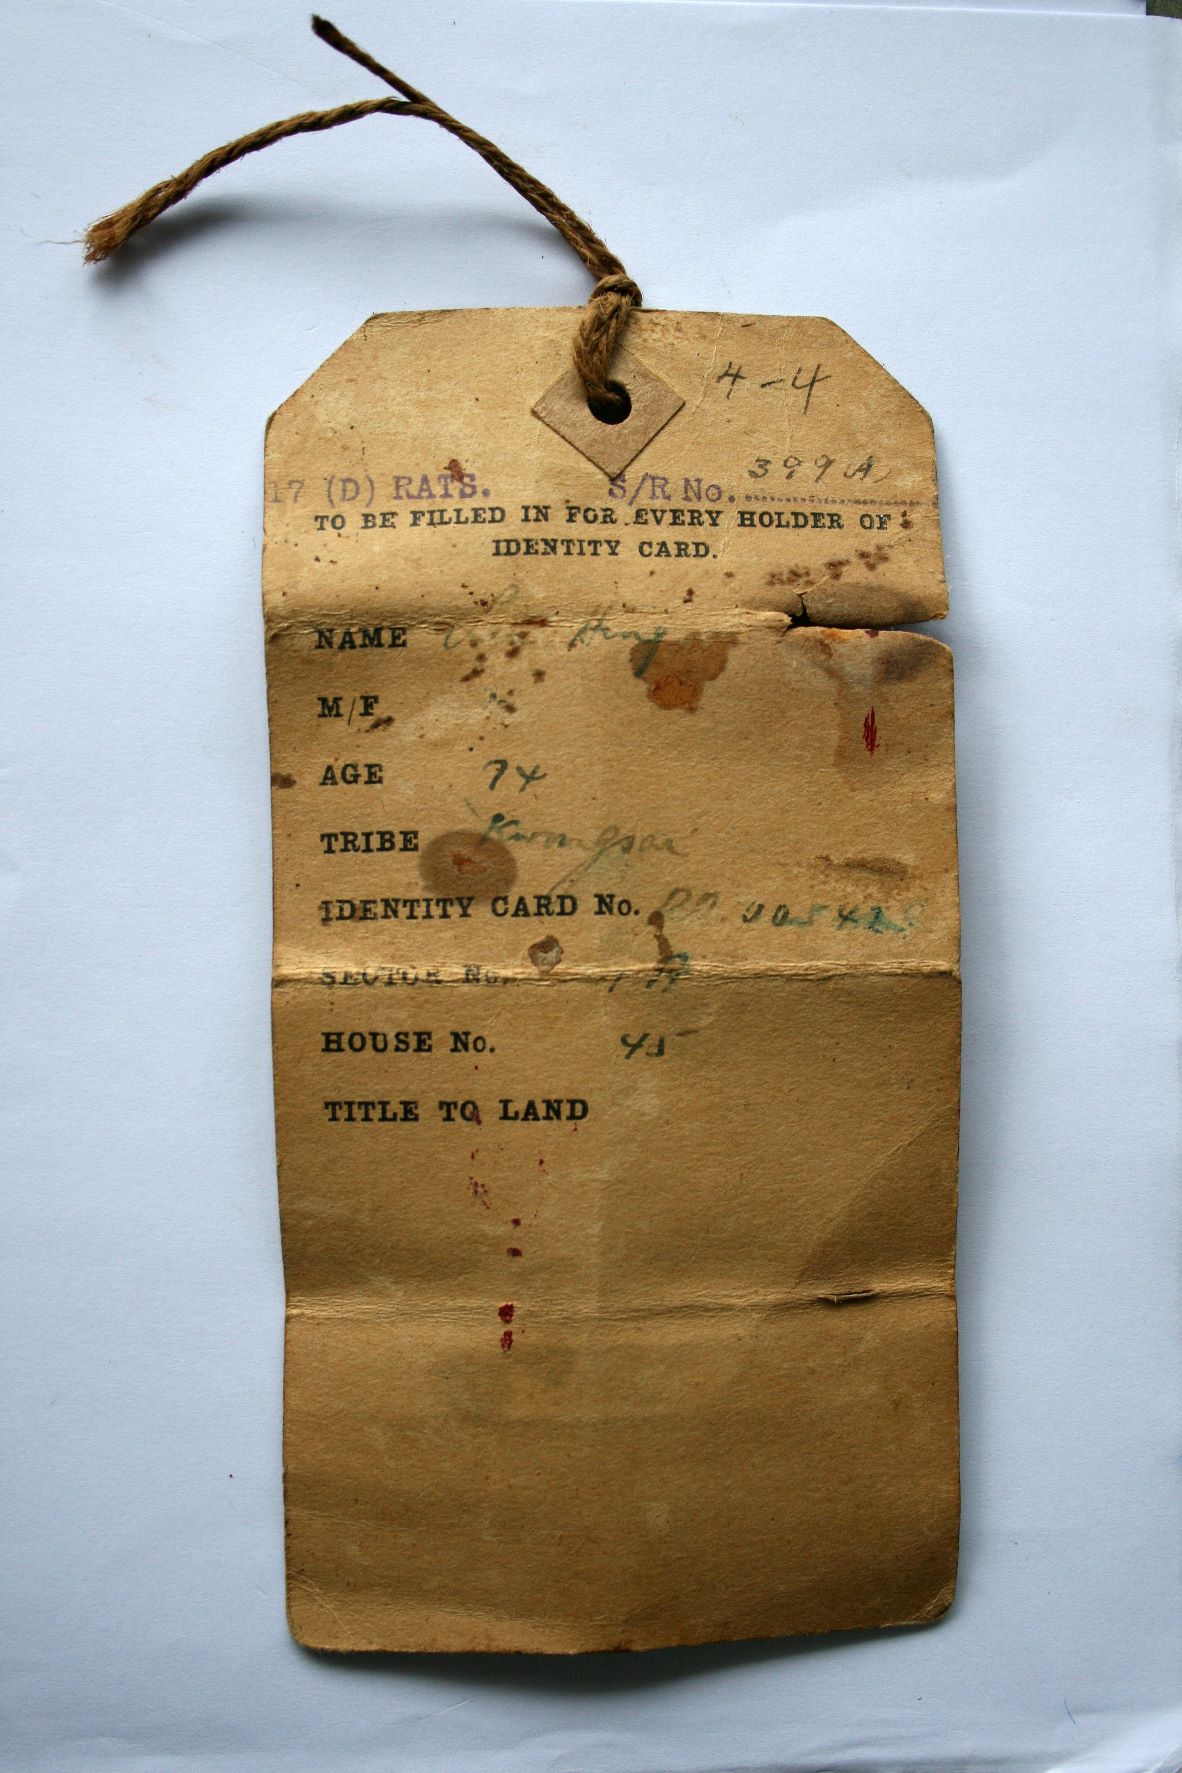 4-4
17 (D) RATS. S/R No. 399A
TO BE FILLED IN FOR EVERY HOLDER OF
IDENTITY CARD.
NAME Hing
M/F
AGE 74
TRIBE Kwongsai
IDENTITY CARD No.
SECTOR No.
HOUSE No. 45
TITLE TO LAND